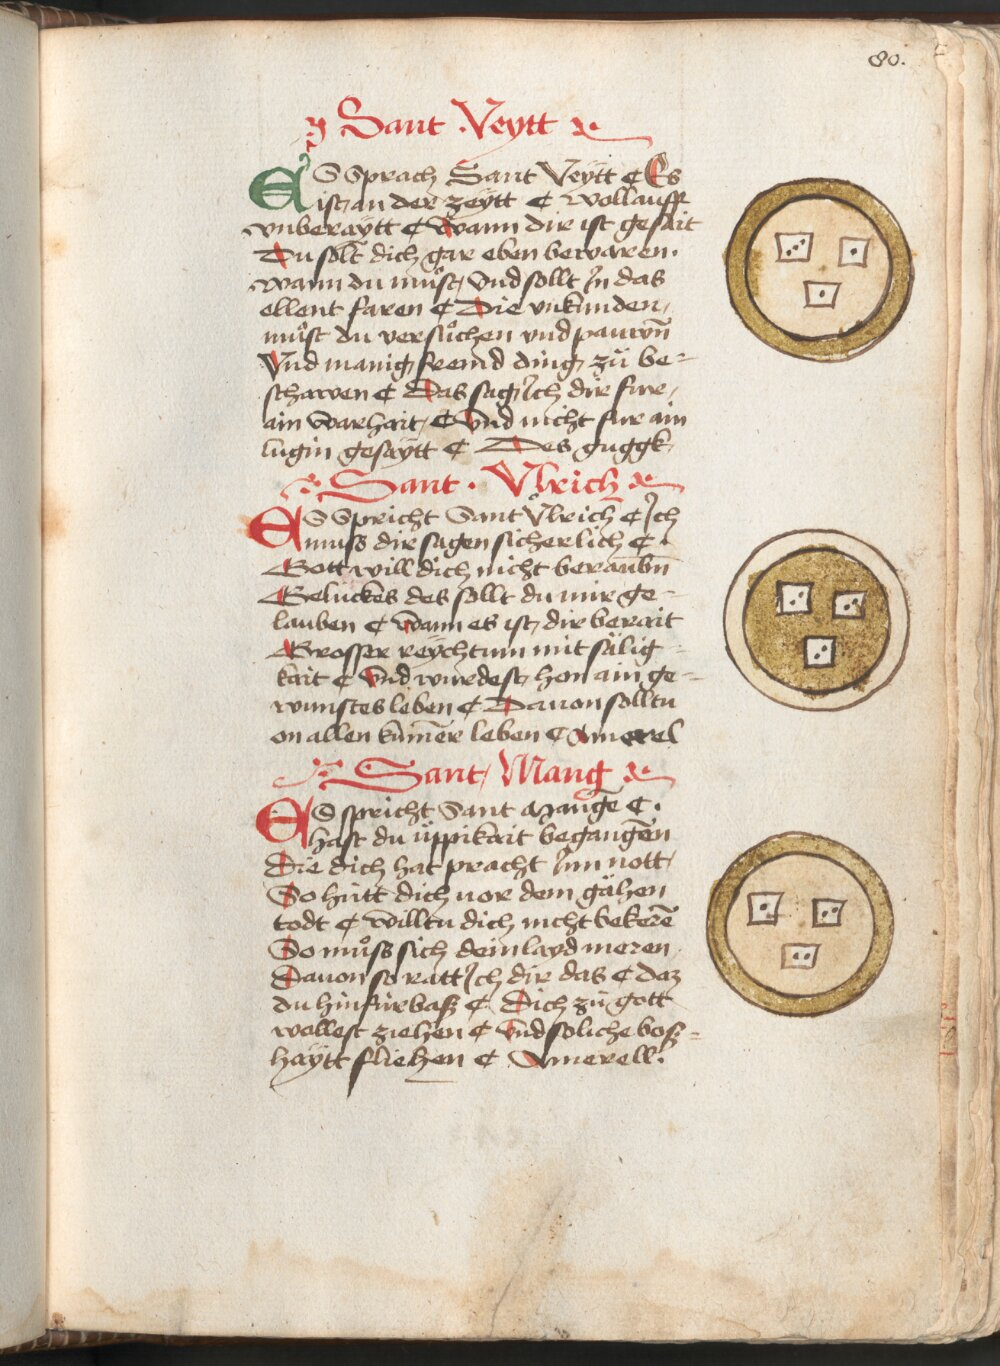 80.
Sant Veytt
ES Sprach Sant Veÿtt ¢ Es
ist an der zeÿtt ¢ wollauff
vnberaÿtt ¢ wann dir ist gesait
Du solt dich gar eben bewaren.
wann du můst, vnd sollt In das
ellent faren ¢ Die vnkunden,
můst du versůchen vnd pauwn̄
Vnd manig fremd ding, zů be-
schawen ¢ Das sag Ich dir fur,
ain warhait, ¢ Vnd nicht fur ain
lugin gesaÿtt ¢ Des guggk
Sant. Vlrich
ES Spricht Sant Vͦlrich ¢ Ich
muss dir sagen sicherlich ¢.
Gott will dich nicht beraubn̄
Gelückes des sollt du mir ge-
lauben ¢ wann es ist, dir berait
Grosser reÿchtum mit sälig-
kait ¢ Vnd wurdest, hon ain ge-
wunstes leben ¢ Dauon solltu
on allen kum̄er leben ¢ Amerel
Sant, Mang
ES spricht Sant Mange ¢.
hast du üppikait begangen
Die dich hat pracht Inn nott,
So hütt dich vor dem gähen
todt ¢ willtu dich nicht bekerē
So můss sich dein layd meren,
Dauon so ratt Ich dir das ¢ daz
du hinfürbasz ¢ Dich zů gott
wollest ziehen ¢ Vnd soliche bosz-
haÿtt fliehen ¢ Amerell.